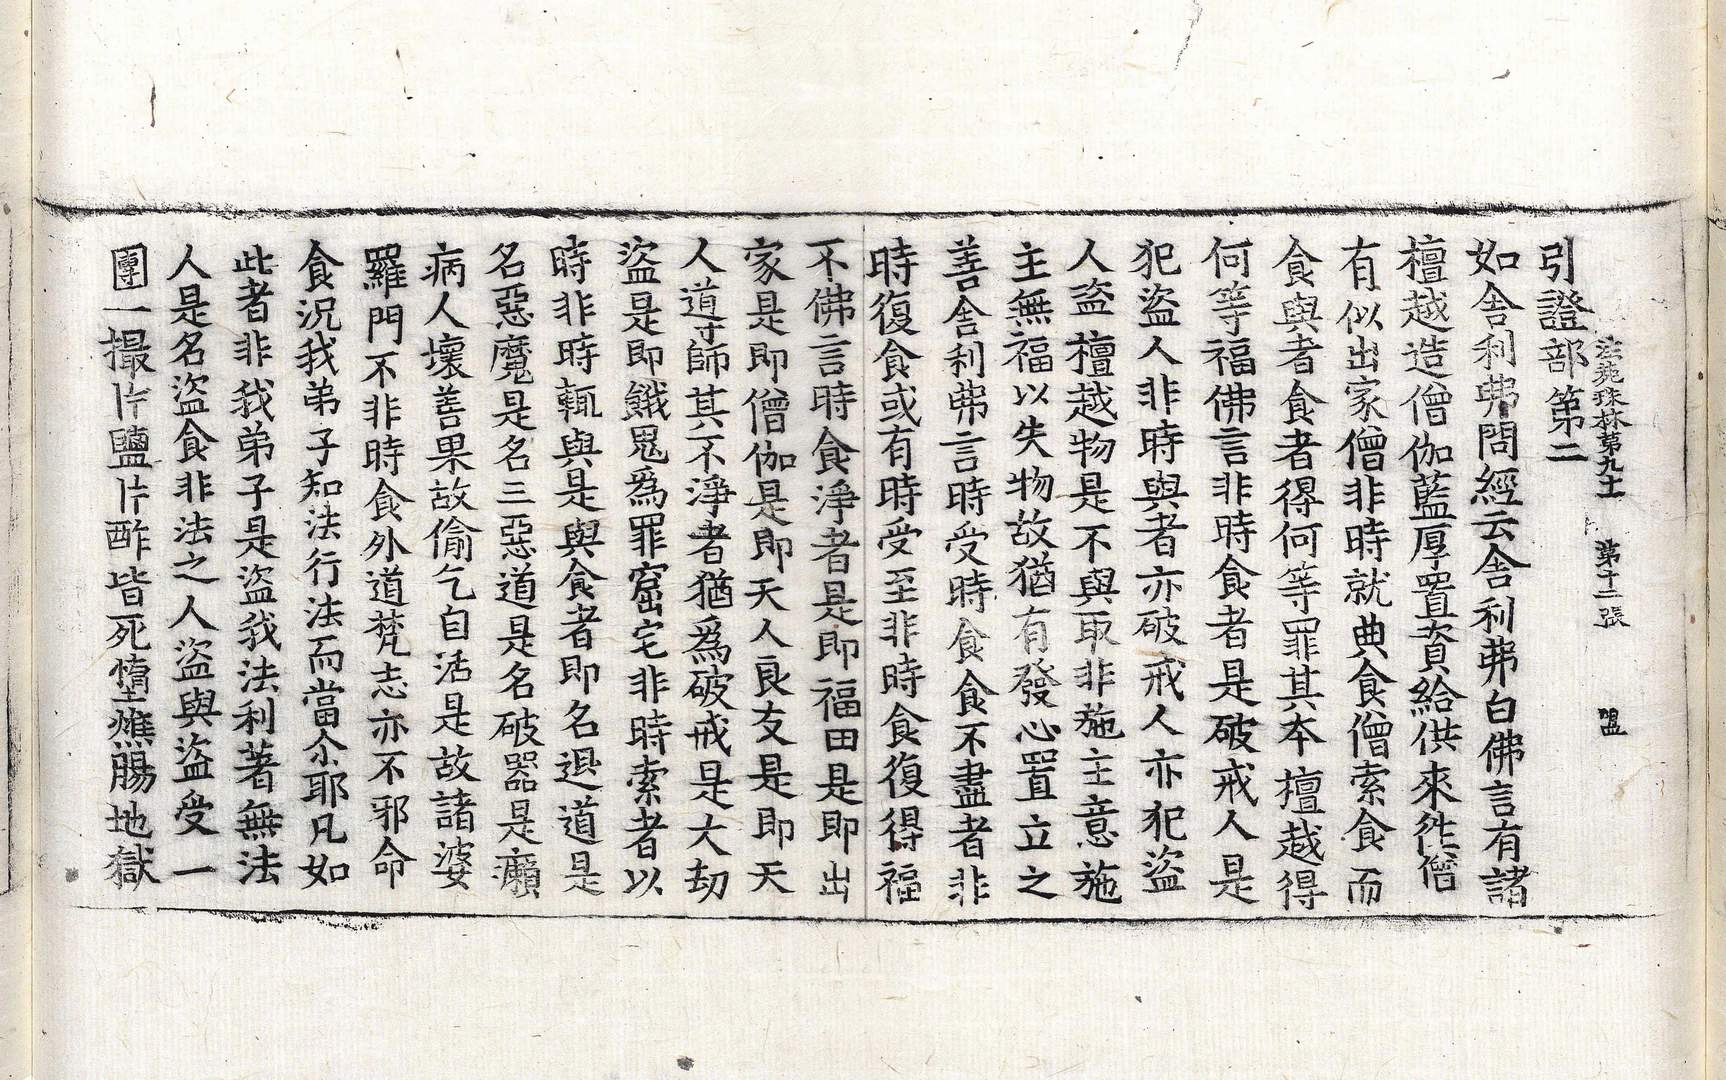 法苑珠林第九十 第十二張 盟
引證部第二
如舍利弗問經云舍利弗白佛言有諸
檀越造僧伽藍厚置資給供來徃僧
有似出家僧非時就典食僧索食而
食與者食者得何等罪其本檀越得
何等福佛言非時食者是破戒人是
犯盜人非時與者亦破戒人亦犯盜
人盜檀越物是不與取非施主意施
主無福以失物故猶有發心置立之
善舍利弗言時受時食食不盡者非
時復食或有時受至非時食復得福
不佛言時食淨者是即福田是即出
家是即僧伽是即天人良友是即天
人導師其不淨者猶爲破戒是大劫
盜是即餓鬼爲罪窟宅非時索者以
時非時輒與是與食者即名退道是
名惡魔是名三惡道是名破器是癩
病人壞善果故偷乞自活是故諸婆
羅門不非時食外道梵志亦不邪命
食況我弟子知法行法而當尒耶凡如
此者非我弟子是盜我法利著無法
人是名盜食非法之人盜與盜受一
團一撮片鹽片酢皆死墮燋腸地獄